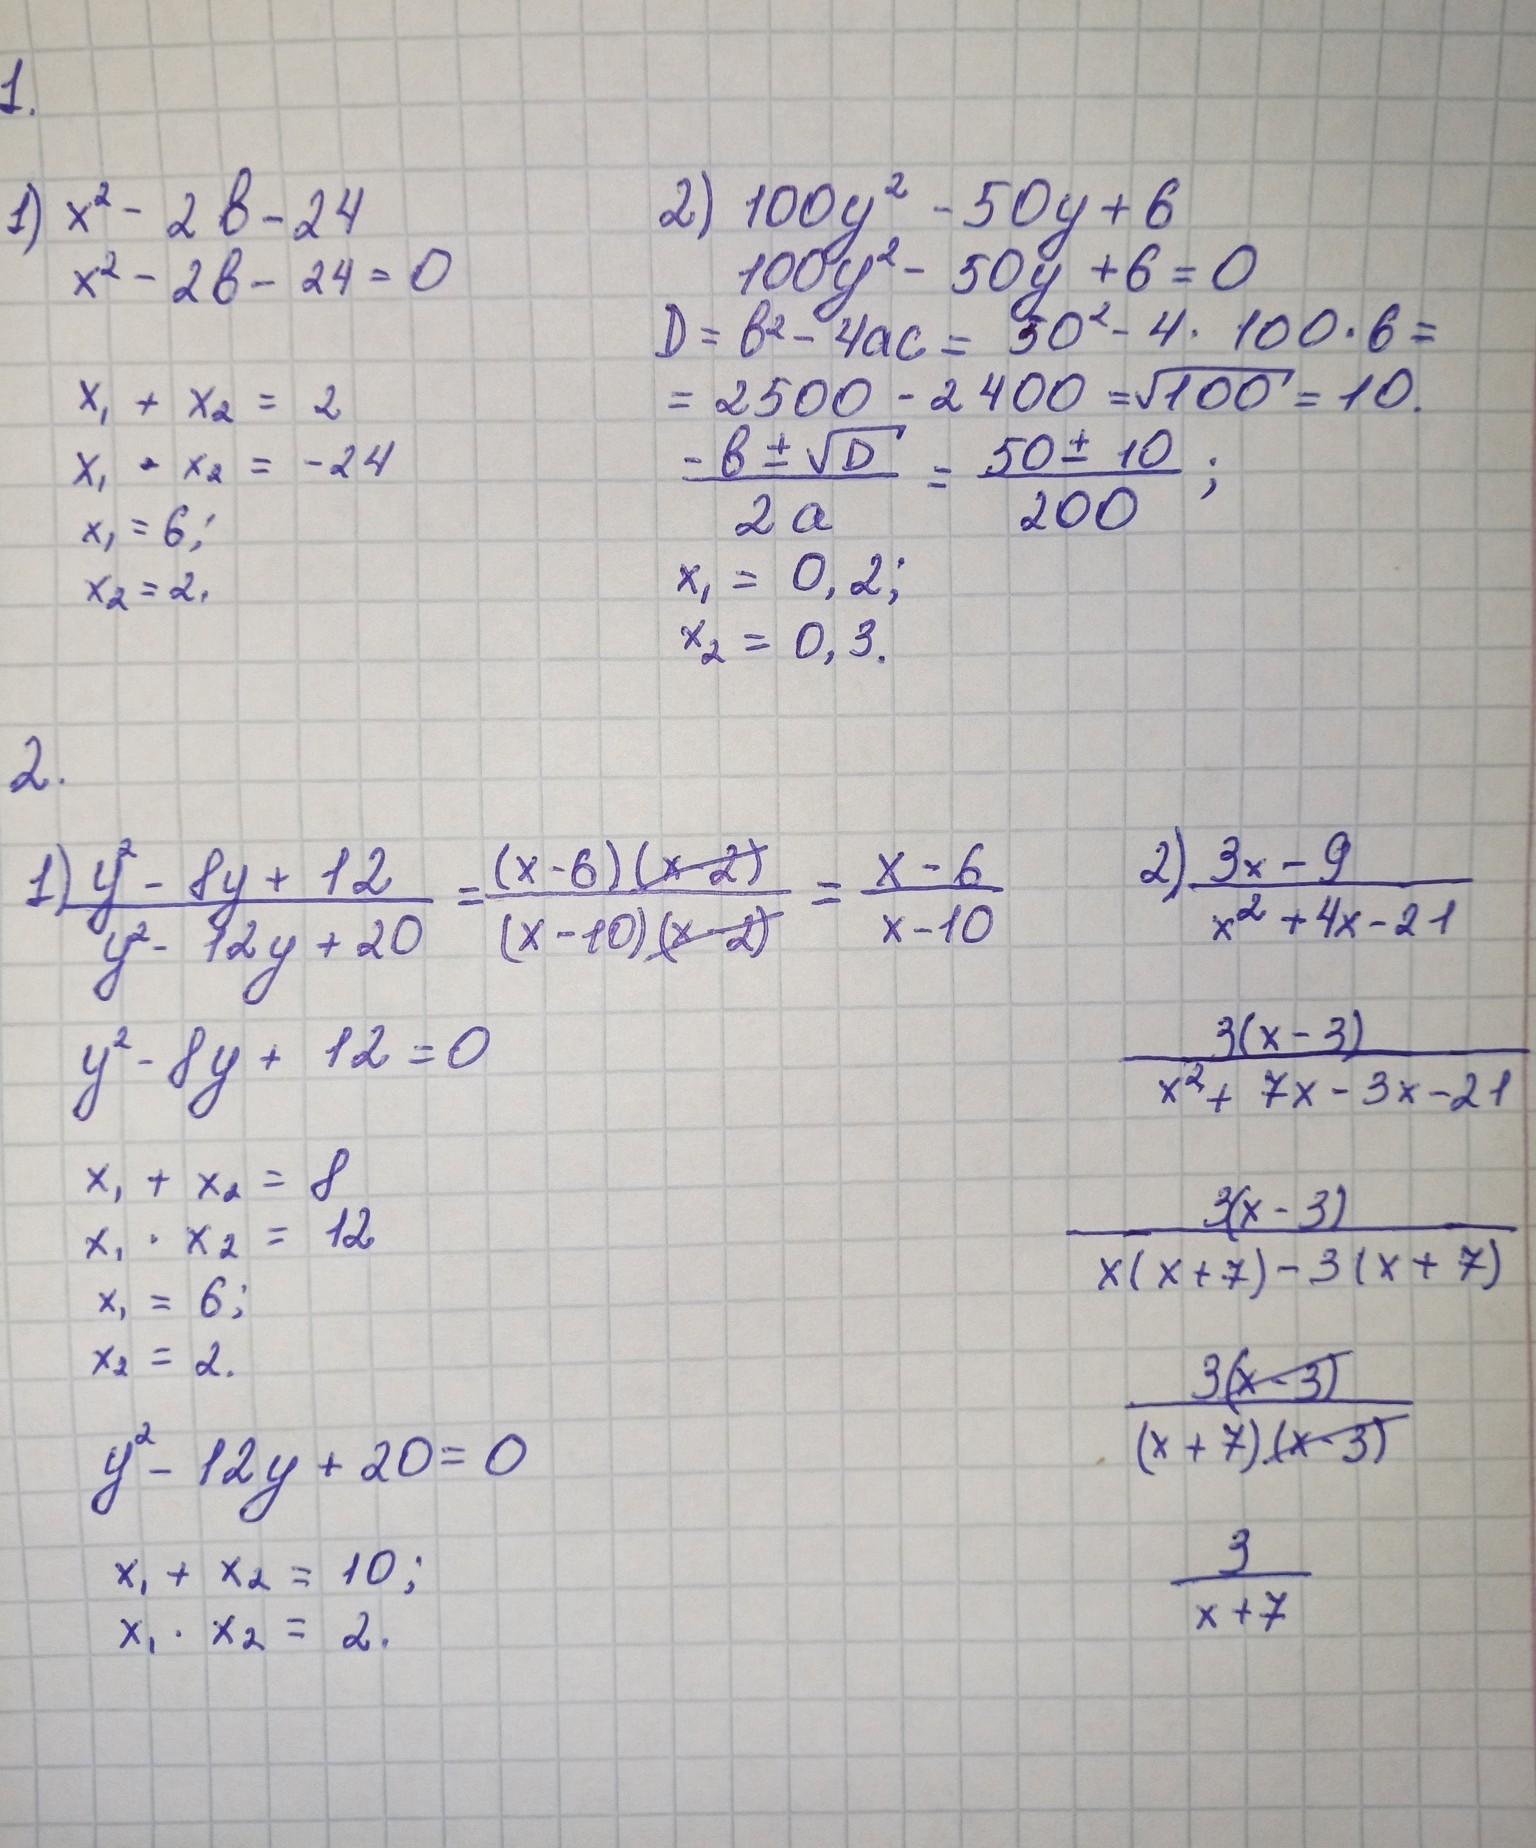 1.
1) x² - 2в - 24
x² - 2в - 24 = 0
x₁ + x₂ = 2
x₁ · x₂ = -24
x₁ = 6;
x₂ = 2.
2) 100y² - 50y + 6
100y² - 50y + 6 = 0
D = в² - 4ac = 50² - 4 · 100 · 6 =
= 2500 - 2400 = √100 = 10.
(-в ± √D)/(2a) = (50 ± 10)/200;
x₁ = 0,2;
x₂ = 0,3.
2.
1) (y² - 8y + 12)/(y² - 12y + 20) = ((x-6)(x-2))/((x-10)(x-2)) = (x-6)/(x-10)
y² - 8y + 12 = 0
x₁ + x₂ = 8
x₁ · x₂ = 12
x₁ = 6;
x₂ = 2.
y² - 12y + 20 = 0
x₁ + x₂ = 10;
x₁ · x₂ = 2.
2) (3x - 9)/(x² + 4x - 21)
3(x - 3)/(x² + 7x - 3x - 21)
3(x - 3)/(x(x+7) - 3(x+7))
3(x-3)/((x+7)(x-3))
3/(x+7)